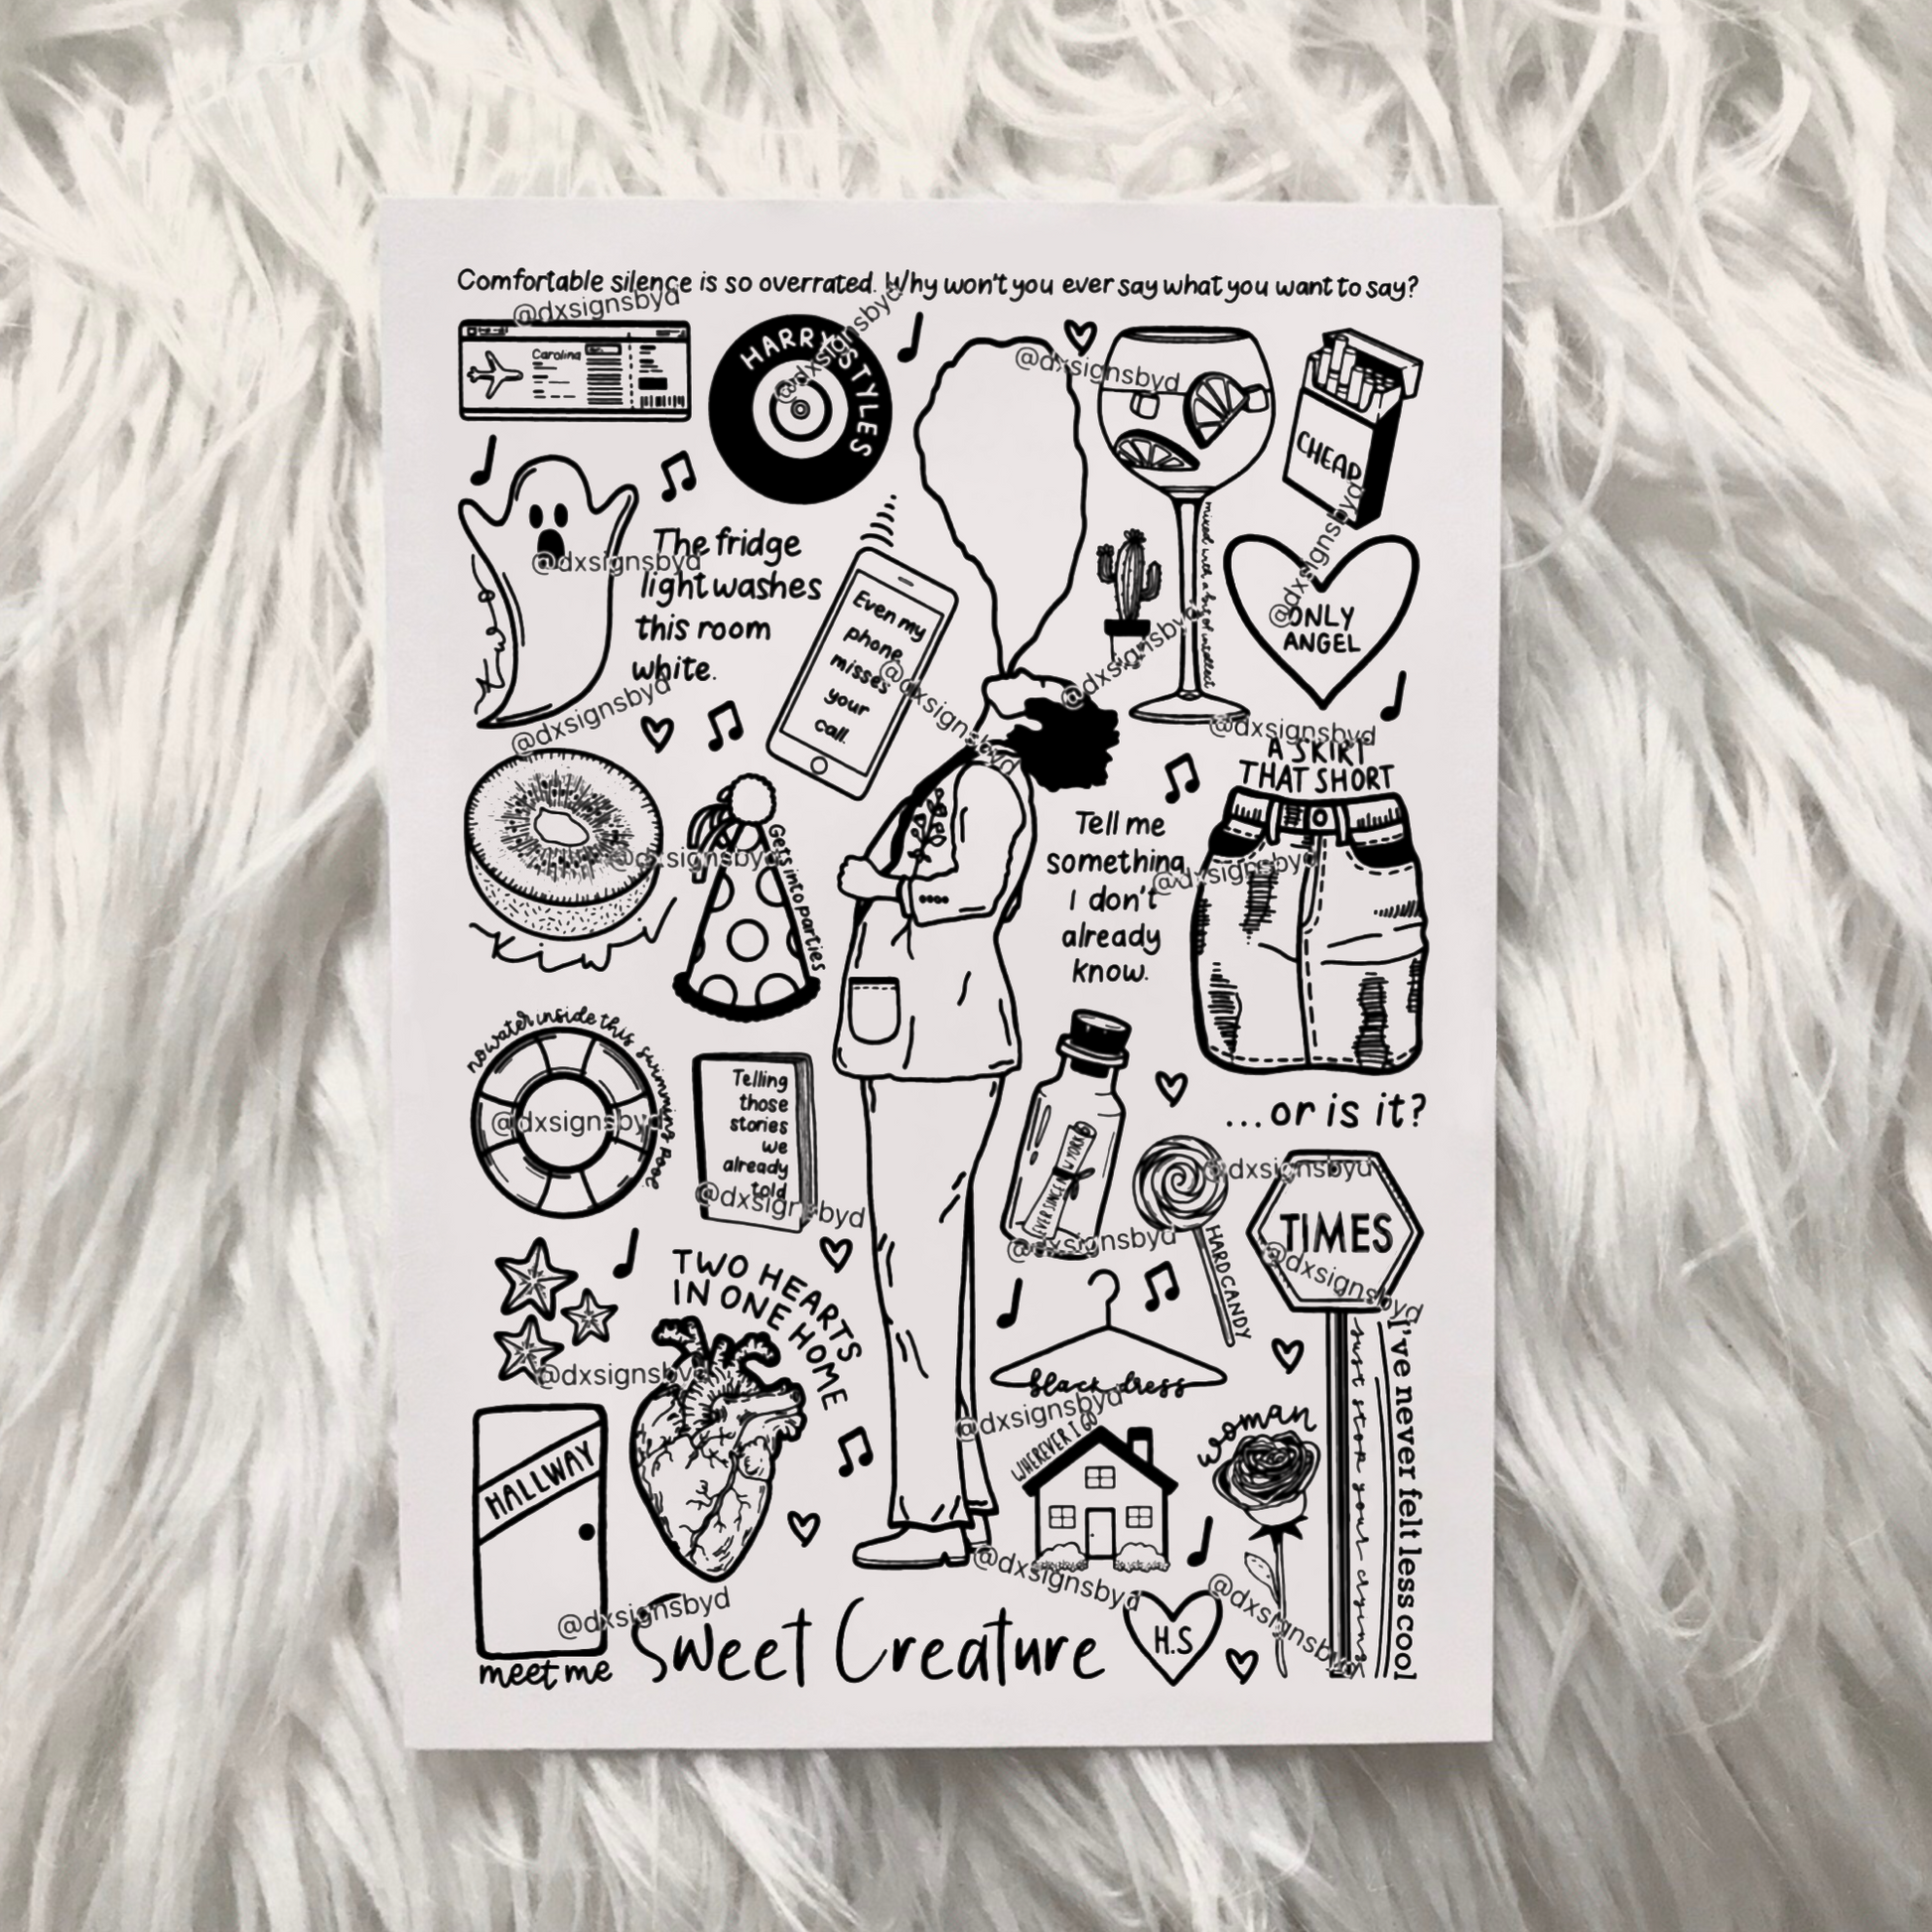 Comfortable silence is so overrated. Why won't you ever say what you want to say?
@dxsignsbyd
Carolina
HARRY STYLES
@dxsignsbyd
@dxsignsbyd
CHEAP
@dxsignsbyd
The fridge
light washes
this room
white.
@dxsignsbyd
two
@dxsignsbyd
Even my
phone
misses
your
call.
@dxsignsbyd
mixed with a bit of intellect
@dxsignsbyd
ONLY
ANGEL
@dxsignsbyd
A SKIRT
THAT SHORT
@dxsignsbyd
Gets into parties
@dxsignsbyd
Tell me
something
I don't
already
know.
no water inside this swimming pool
@dxsignsbyd
Telling
those
stories
we
already
told
@dxsignsbyd
EVER SINCE NEW YORK
@dxsignsbyd
...or is it?
@dxsignsbyd
HARD CANDY
TIMES
@dxsignsbyd
TWO HEARTS
IN ONE HOME
@dxsignsbyd
black dress
@dxsignsbyd
WHEREVER I GO
@dxsignsbyd
woman
just stop your crying
I've never felt less cool
@dxsignsbyd
HALLWAY
meet me
@dxsignsbyd
Sweet Creature
H.S